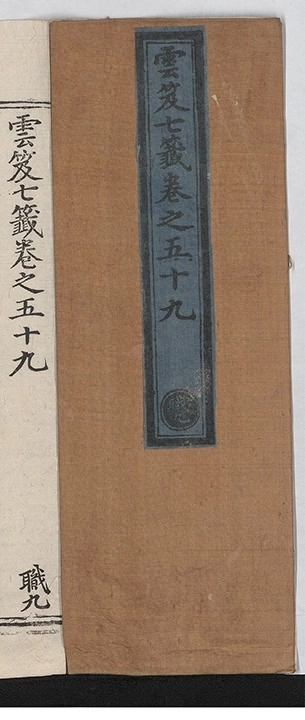 雲笈七籤卷之五十九
職
雲笈七籤卷之五十九
職九